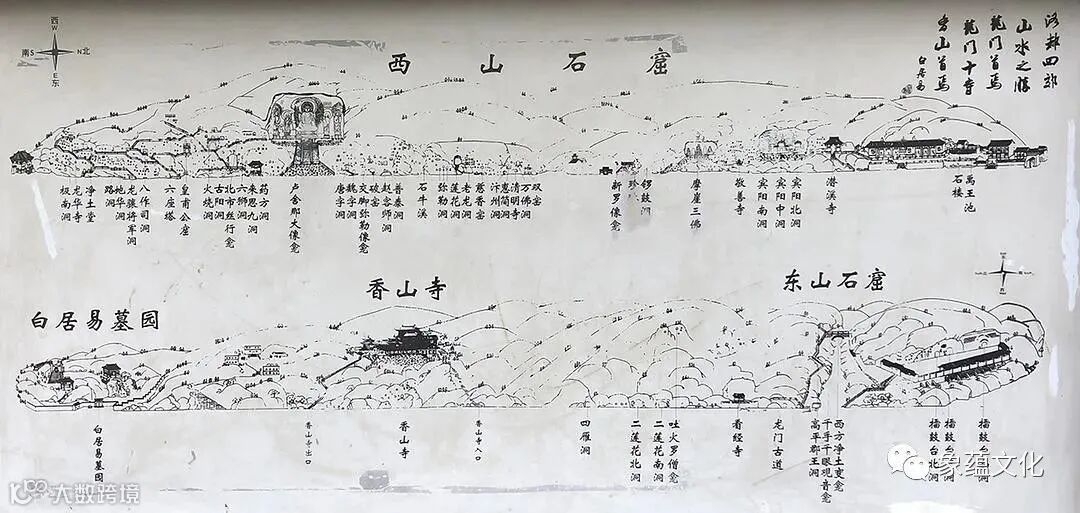 洛都四郊
山水之勝
龍門首焉
龍門十寺
香山首焉
白居易
西
W
南S
N北
E
东
西山石窟
极南洞
龙华寺
净土堂
路洞
地华洞
龙骧将军洞
八作司洞
六座塔
皇甫公窟
火烧洞
古阳洞
北市丝行龛
六狮洞
来思九洞
药方洞
卢舍那大像龛
唐字洞
魏字洞
交脚弥勒像龛
破窑
赵客师洞
普泰洞
石牛溪
弥勒洞
莲花洞
老龙洞
慈香窑
汴州洞
惠简洞
清明寺
万佛洞
双窑
新罗像龛
珍
锣鼓洞
摩崖三佛
敬善寺
宾阳南洞
宾阳中洞
宾阳北洞
潜溪寺
石楼
禹王池
白居易墓园
香山寺
东山石窟
白居易墓园
香山寺出口
香山寺
香山寺入口
四雁洞
二莲花北洞
二莲花南洞
吐火罗僧龛
看经寺
龙门古道
高平郡王洞
千手千眼观音龛
西方净土变龛
擂鼓台北洞
擂鼓台
洞
擂鼓台
洞
象蕴文化
大数跨境